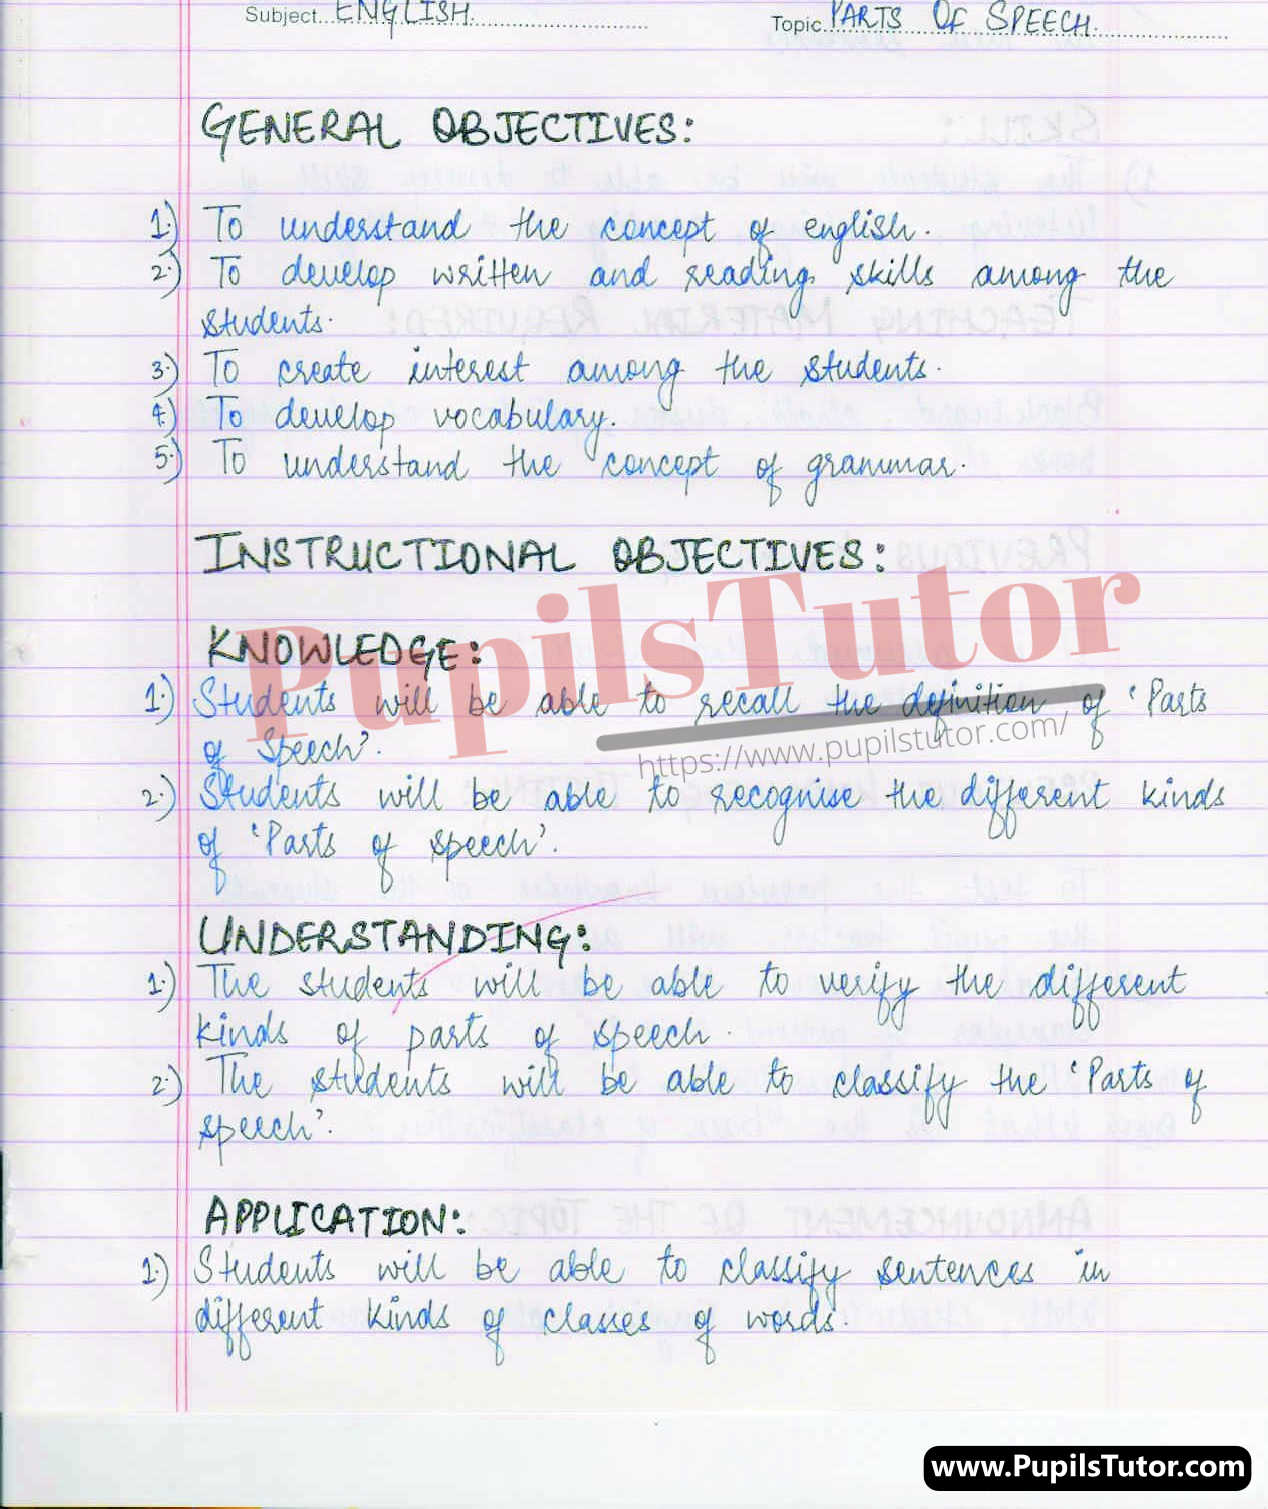 Subject ENGLISH. Topic PARTS OF SPEECH.
GENERAL OBJECTIVES:
1.) To understand the concept of english.
2.) To develop written and reading skills among the
students.
3.) To create interest among the students.
4.) To develop vocabulary.
5.) To understand the concept of grammar.
INSTRUCTIONAL OBJECTIVES:
PupilsTutor
https://www.pupilstutor.com/
KNOWLEDGE:
1.) Students will be able to recall the definition of 'Parts
of Speech'.
2.) Students will be able to recognise the different kinds
of 'Parts of speech'.
UNDERSTANDING:
1.) The students will be able to verify the different
kinds of parts of speech.
2.) The students will be able to classify the 'Parts of
speech'.
APPLICATION:
1.) Students will be able to classify sentences in
different kinds of classes of words.
www.PupilsTutor.com